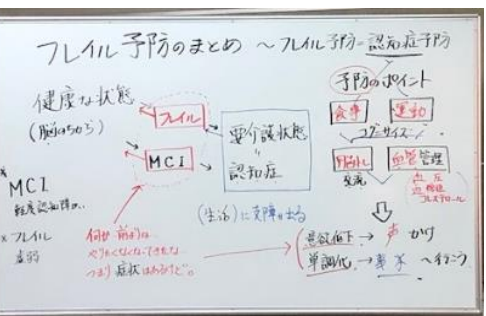 フレイル予防のまとめ ～フレイル予防=認知症予防
健康な状態
(脳のちから)
フレイル
MCI
要介護状態
認知症
予防のポイント
食事
運動
コグニサイズ
外出
交流
血管管理
血圧
血糖
コレステロール
* MCI
軽度認知障がい
* フレイル
虚弱
何か前ような
つまり 症状はあるけど。
(生活)に支障が出る
意欲低下 →
かけ
単調化 →
へ行こう